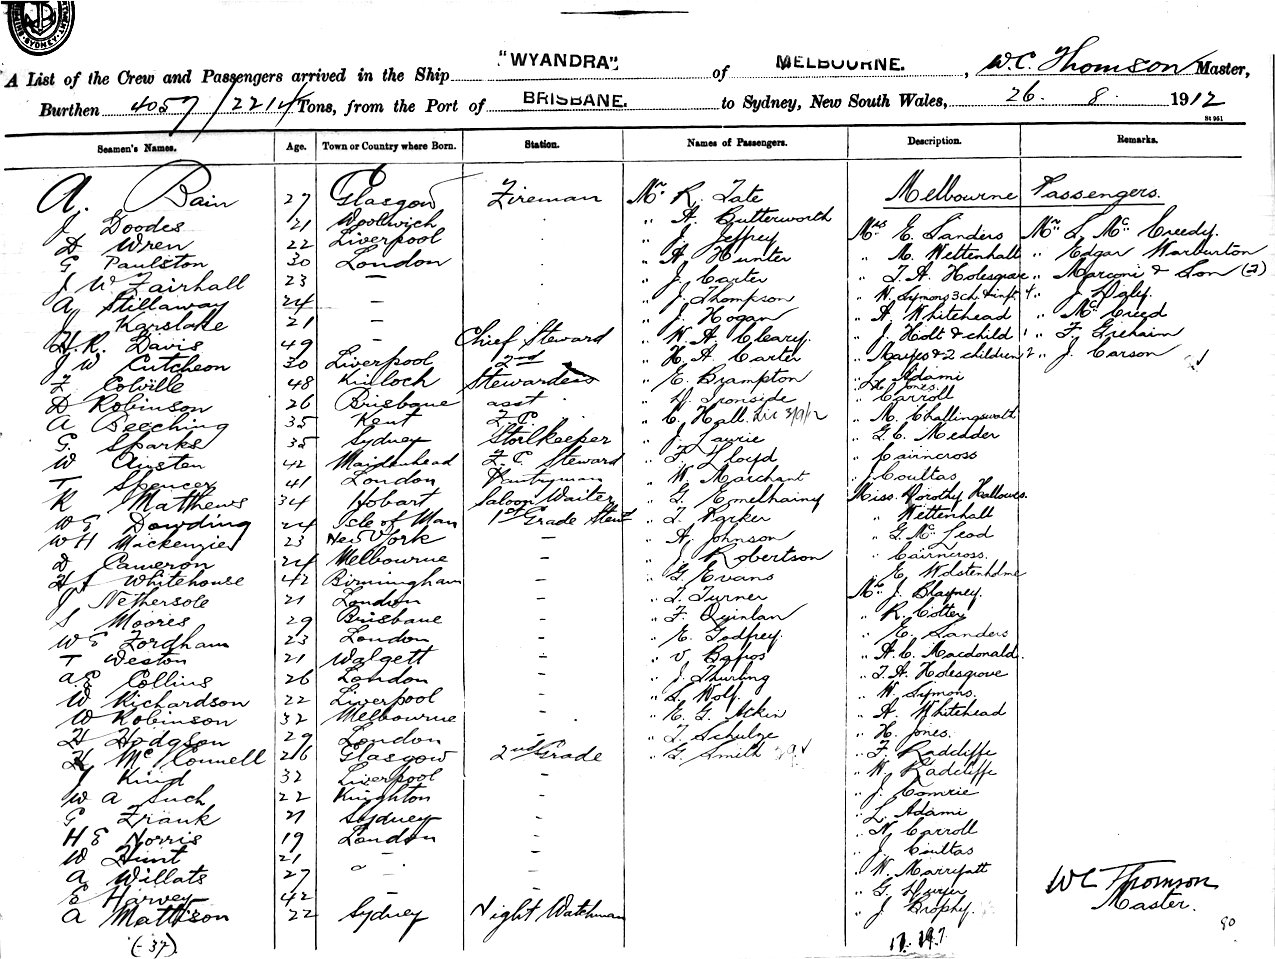 SYDNEY
"WYANDRA" MELBOURNE.
A List of the Crew and Passengers arrived in the Ship of , W.C. Thomson Master,
Burthen 4057/2214 Tons, from the Port of BRISBANE. to Sydney, New South Wales, 26. 8. 1912
St 951
Seamen's Names. Age. Town or Country where Born. Station. Names of Passengers. Description. Remarks.
A. Bain 27 Glasgow Fireman Mr R. Tate Melbourne Passengers.
J Doodes 21 Woolwich " A. Butterworth
D Wren 22 Liverpool " J. Jeffrey Mrs E. Sanders Mr L. McCreedy.
G Paulston 30 London " A Hunter " M. Wettenhall " Edgar Warburton
J W Fairhall 23 — " J. Carter " T.A. Holesgrove " Marconi & Son (2)
A Stillaway 24 — " J. Thompson " W. Symons 3 ch & inft 4 "
J Karslake 21 — " J. Hogan " A. Whitehead " McCreed
H.R. Davis 49 — Chief Steward " W. A. Cleary. " J. Holt & child 1 " F. Greham
J W Cutcheon 30 Liverpool 2nd " H. A. Carter " Mayes & 2 children 2 " J. Carson
F. Colville 48 Kinloch Stewardess " E. Brampton " L. Adami
" H. Jones.
D Robinson 26 Brisbane asst " D. Ironside " Carroll
A Beeching 35 Kent F.C. " C. Hall. " M. Challingsworth
G. Sparks 35 Sydney Storekeeper " J. Laurie " G. C. Medder
W Austen 42 Maidenhead F.C. Steward " F Lloyd " Cairncross
T Spencer 41 London Pantryman " W. Marchant " J Coultas
R Matthews 34 Hobart Saloon Waiter " G. Emelhainy Miss Dorothy Hallowes
W G Dowding 24 Isle of Man 1st Grade Stewd " T. Parker " Wettenhall
W H Mackenzie 23 New York — " A. Johnson " G. McLeod
D Cameron 24 Melbourne — " J. Robertson " Cairncross.
H J Whitehouse 42 Birmingham — " G. Evans " E. Wolstenholme
J Nethersole 21 London — " T. Turner Mr J. Blayney.
S Moores 29 Brisbane — " F. Quinlan " R. Cotter
W G Fordham 23 London — " E. Godfrey. " E. Sanders
T Weston 21 Walgett — " V. Bapos " A. C. Macdonald.
A.E Collins 26 London — " J. Thurling " T. A. Holesgrove
W Richardson 22 Liverpool — " S. Wolf. " W. Symons.
W Robinson 32 Melbourne — " E. G. Atkin " A. Whitehead
H Hodgson 29 London — " T. Schulze " H. Jones.
H McConnell 26 Glasgow 2nd Grade " G. Smith " F. Radcliffe
J Kind 32 Liverpool — " W. Radcliffe
W A Such 22 Knighton — " J. Comrie
G Frank 21 Sydney — " L. Adami
H E Norris 19 London — " N. Carroll
W Hunt 21 " — " J. Coultas
A Willats 27 — — " W. Marriott
E Harvey 42 — — " G. Duryer
A Mattison 22 Sydney Night Watchman " J. Brophy.
WC Thomson
Master.
(-37)
90